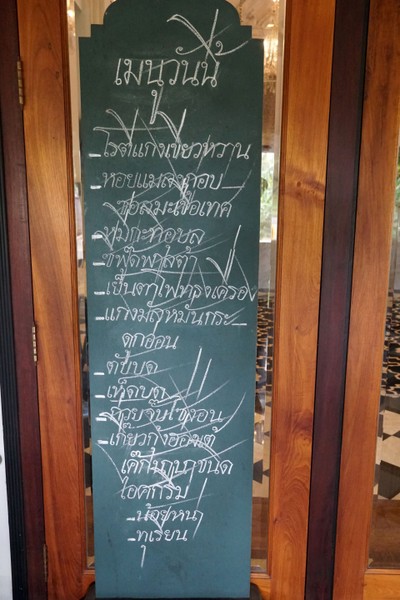 เมนูวันนี้
-โรตีแกงเขียวหวาน
-หอยแมลงภู่อบ
ซอสมะเขือเทศ
-ซีฟู๊ดพาสต้า
-เย็นตาโฟทรงเครื่อง
-แกงมัสหมั่นกระ-
ดูกอ่อน
-ตับบด
-เห็ดบด
-ก๋วยจั๊บไข่
-เกี๊ยวกุ้งฮ่องเต้
เค๊ก ชนิด
ไอศกรีม
-น้อยหน่า
-ทุเรียน